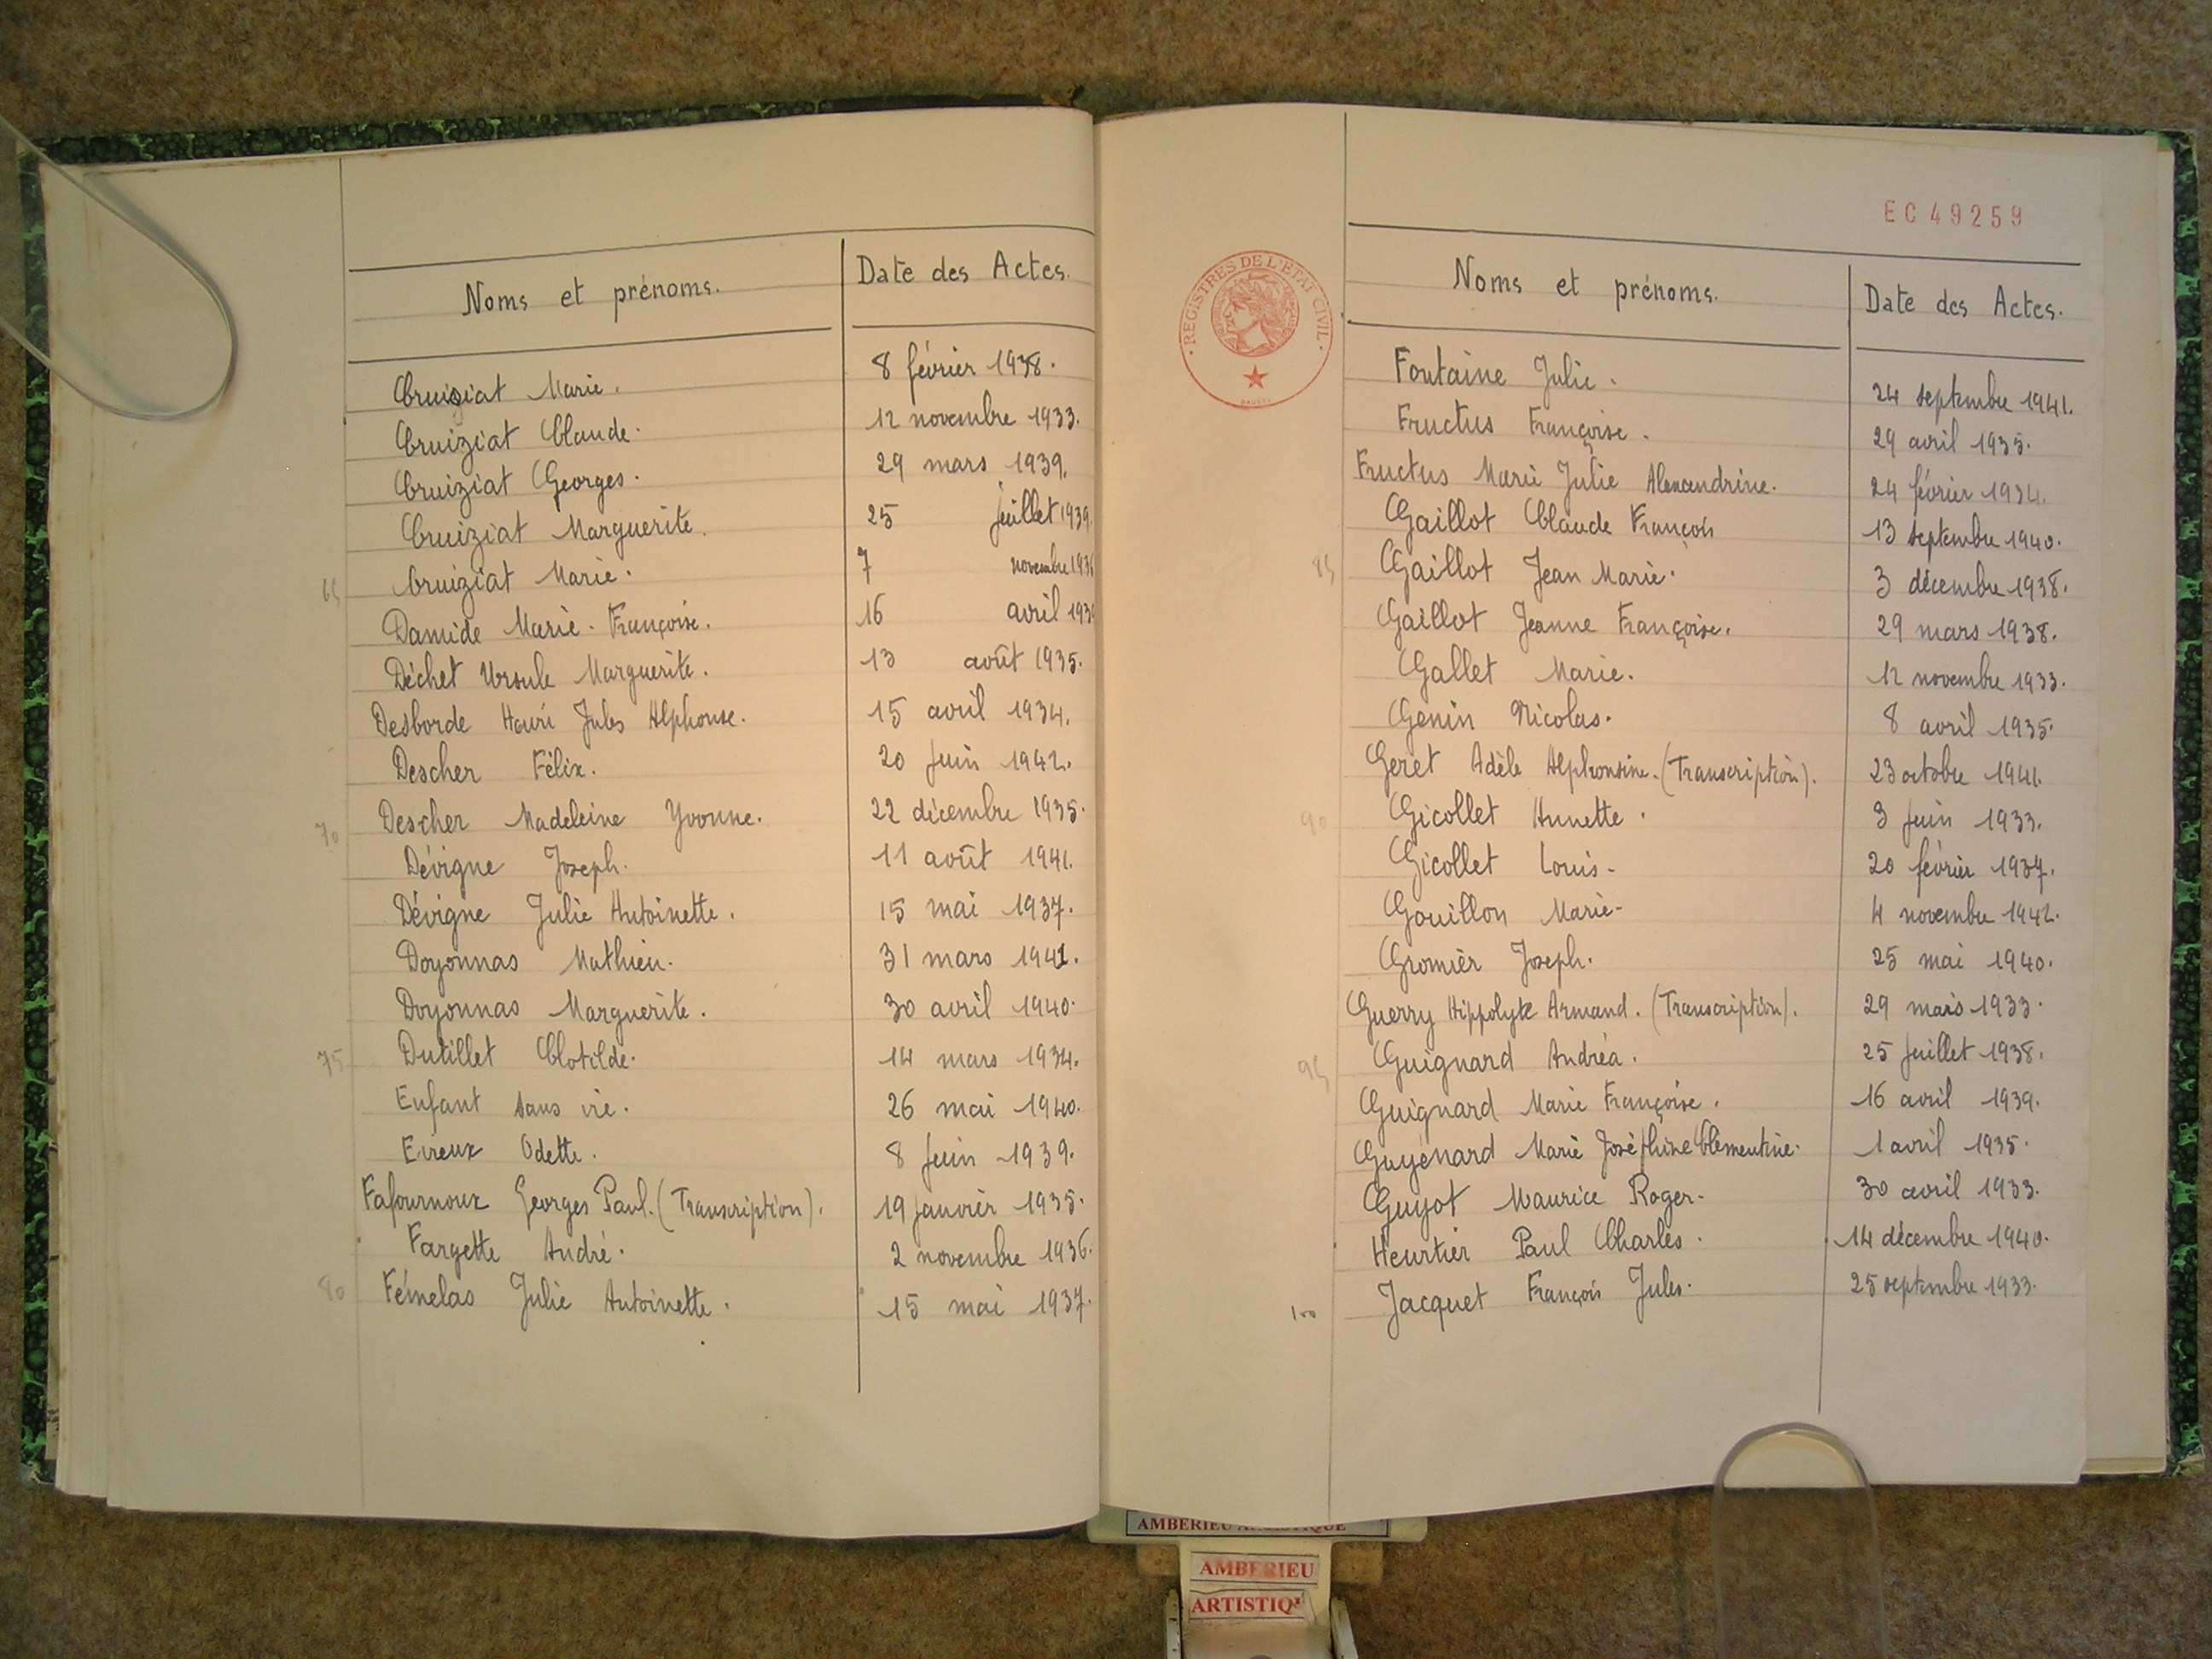 Noms et prénoms. Date des Actes.
Cruiziat Marie. 8 février 1938.
Cruiziat Claude. 12 novembre 1933.
Cruiziat Georges. 29 mars 1939.
Cruiziat Marguerite. 25 juillet 1939
65 Cruiziat Marie. 7 novembre
Damide Marie-Françoise. 16 avril
Déchet Ursule Marguerite. 13 août 1935.
Desborde Henri Jules Alphonse. 15 avril 1934.
Descher Félix. 20 juin 1942.
70 Descher Madeleine Yvonne. 22 décembre 1935.
Dévigne Joseph. 11 août 1941.
Dévigne Julie Antoinette. 15 mai 1937.
Doyonnas Mathieu. 31 mars 1941.
Doyonnas Marguerite. 30 avril 1940.
75 Dutillet Clotilde. 14 mars 1934.
Enfant sans vie. 26 mai 1940.
Evreux Odette. 8 juin 1939.
Fafournoux Georges Paul. (Transcription). 19 janvier 1935.
Fargette André. 2 novembre 1936.
80 Fémelas Julie Antoinette. 15 mai 1937.
EC 49259
REGISTRES DE L'ETAT CIVIL
Noms et prénoms. Date des Actes.
Fontaine Julie. 24 septembre 1941.
Fructus Françoise. 29 avril 1935.
Fructus Marie Julie Alexandrine. 24 février 1934.
Gaillot Claude François 13 septembre 1940.
85 Gaillot Jean Marie. 3 décembre 1938.
Gaillot Jeanne Françoise. 29 mars 1938.
Gallet Marie. 12 novembre 1933.
Genin Nicolas. 8 avril 1935.
Geret Adèle Alphonsine. (Transcription). 23 octobre 1941.
90 Gicollet Annette. 3 juin 1933.
Gicollet Louis. 20 février 1937.
Gouillon Marie. 4 novembre 1942.
Gromier Joseph. 25 mai 1940.
Guerry Hippolyte Armand. (Transcription). 29 mars 1933.
95 Guignard Andréa. 25 juillet 1938.
Guignard Marie Françoise. 16 avril 1939.
Guyénard Marie Joséphine Clémentine. 1 avril 1935.
Guyot Maurice Roger. 30 avril 1933.
Heurtier Paul Charles. 14 décembre 1940.
100 Jacquet François Jules. 25 septembre 1933.
AMBERIEU ARTISTIQUE
AMBERIEU
ARTISTIQ